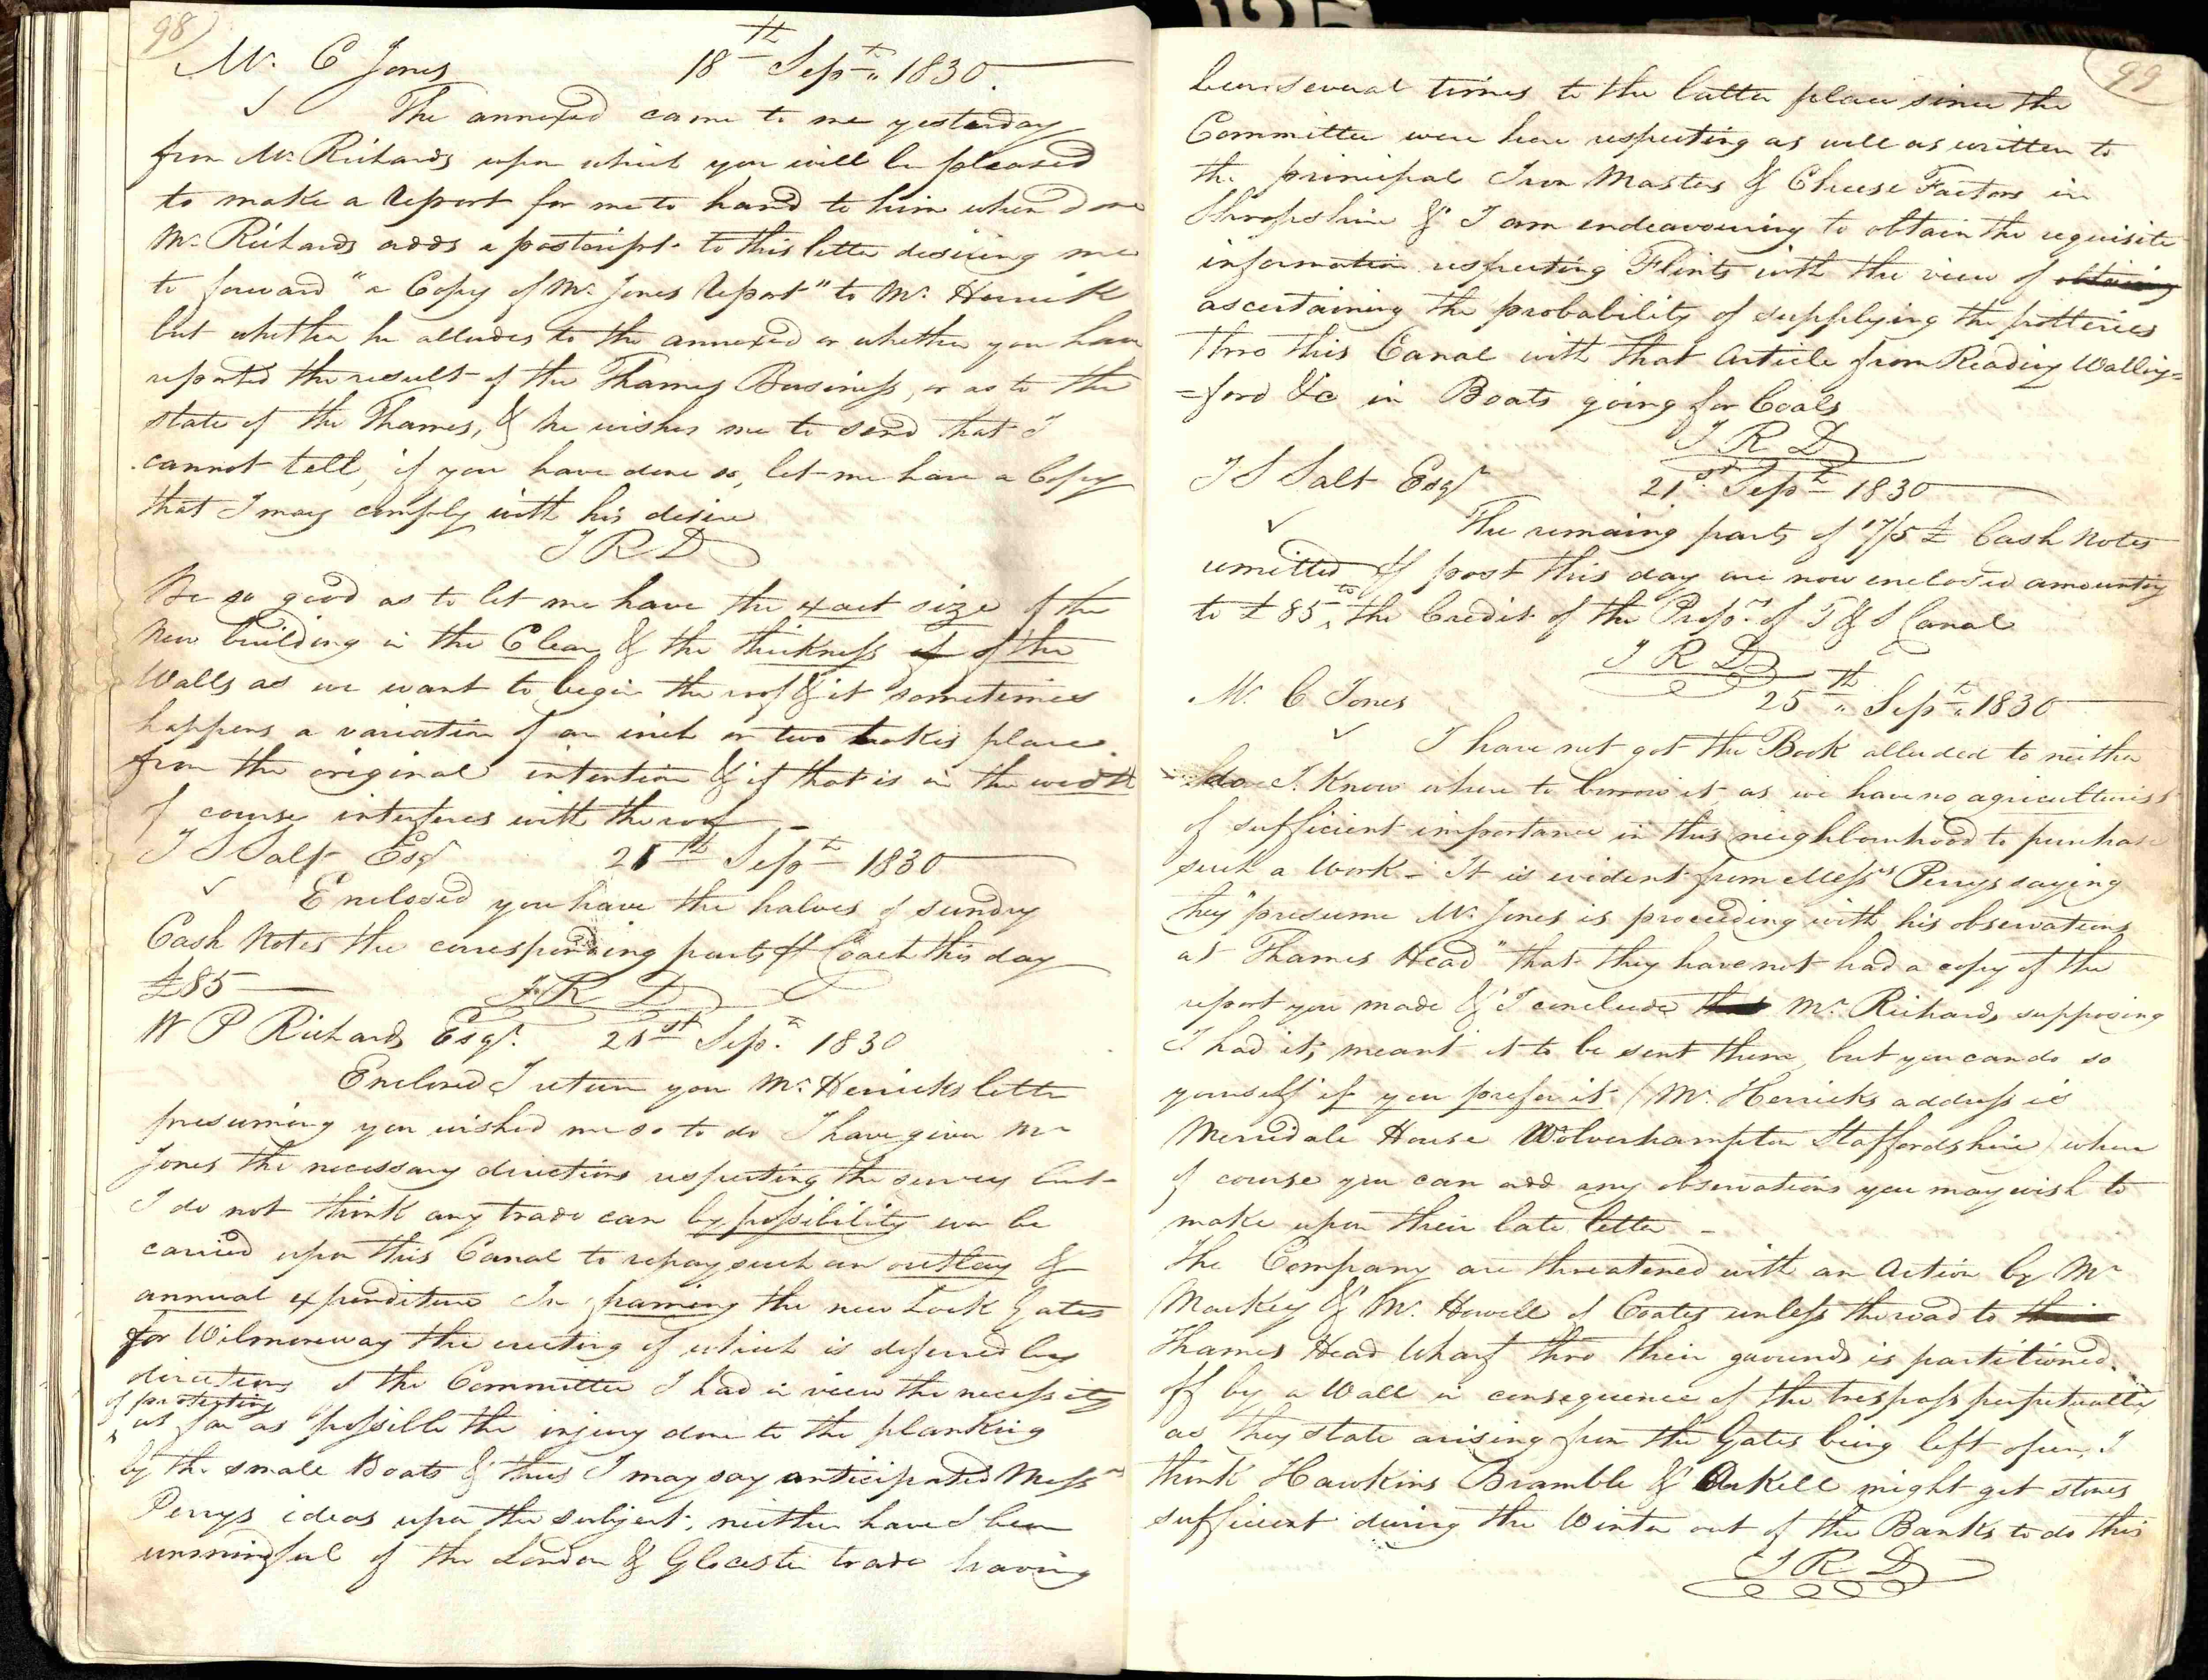 98
Mr. C Jones 18th Sepr. 1830
The annexed came to me yesterday
from Mr Richards upon which you will be pleased
to make a report for me to hand to him when done
Mr Richards adds a postcript to this letter desiring me
to forward "a Copy of Mr Jones report" to Mr. Herrick
but whether he alludes to the annexed or whether you have
reported the result of the Thames Business, or as to the
state of the Thames, & he wishes me to send that I
cannot tell, if you have done so, let me have a Copy
that I may comply with his desire
J R D
Be so good as to let me have the exact size of the
New building in the Clear & the thickness of of the
Walls as we want to begin the roof & it sometimes
happens a variation of an inch or two takes place
from the original intention & if that is in the width
of course interferes with the roof
J S Salt Esqr 21st Sepr 1830
Enclosed you have the halves of sundry
Cash Notes the corresponding parts pr Coach this day
£85 J R D
W P Richards Esqr. 21st Sepr. 1830
Enclosed I return you Mr. Herricks letter
presuming you wished me so to do I have given Mr
Jones the necessary directions respecting the survey but
I do not think any trade can by possibility ever be
carried upon this Canal to repay such an outlay &
annual expenditure In framing the new Lock Gates
for Wilmoreway the erecting of which is deferred by
directions of the Committee I had in view the necessity
of protecting
as far as possible the injury done to the planking
by the small Boats & thus I may say anticipated Messrs
Perrys ideas upon the subject, neither have I been
unmindful of the London & Glocester trade having
99
been several times to the latter place since the
Committee were here respecting as well as written to
the principal Iron Masters & Cheese Factors in
Shropshire & I am endeavouring to obtain the requisite
information respecting Flints with the view of obtaining
ascertaining the probability of supplying the potteries
thro this Canal with that Article from Reading Walling=
=ford &c in Boats going for Coals
J R D
J S Salt Esqr 21st. Sepr 1830
The remaing parts of 17/5 £ Cash Notes
remitted pr post this day are now enclosed amounting
to £85 to the Credit of the Propr. of T & S Canal
J R D
Mr. C Jones 25th Sepr. 1830
I have not got the Book alluded to neither
do I know where to borrow it as we have no agriculturist
of sufficient importance in this neighbourhood to purchase
such a Work - It is evident from Messrs Perrys saying
they "presume Mr. Jones is proceeding with his observations
at Thames Head" that they have not had a copy of the
report you made & I conclude that Mr. Richards supposing
I had it, meant it to be sent them, but you can do so
yourself if you prefer it (Mr. Herricks address is
Merridale House Wolverhampton Staffordshire) when
of course you can add any observations you may wish to
make upon their late letter -
The Company are threatened with an Action by Mr
Mackey & Mr. Howell of Coates unless the road to their
Thames Head Wharf thro their grounds is partitioned
off by a Wall in consequence of the trespass perpetually
as they state arising from the Gates being left open, I
think Hawkins Bramble & Arkell might get stones
sufficient during the Winter out of the Banks to do this
J R D